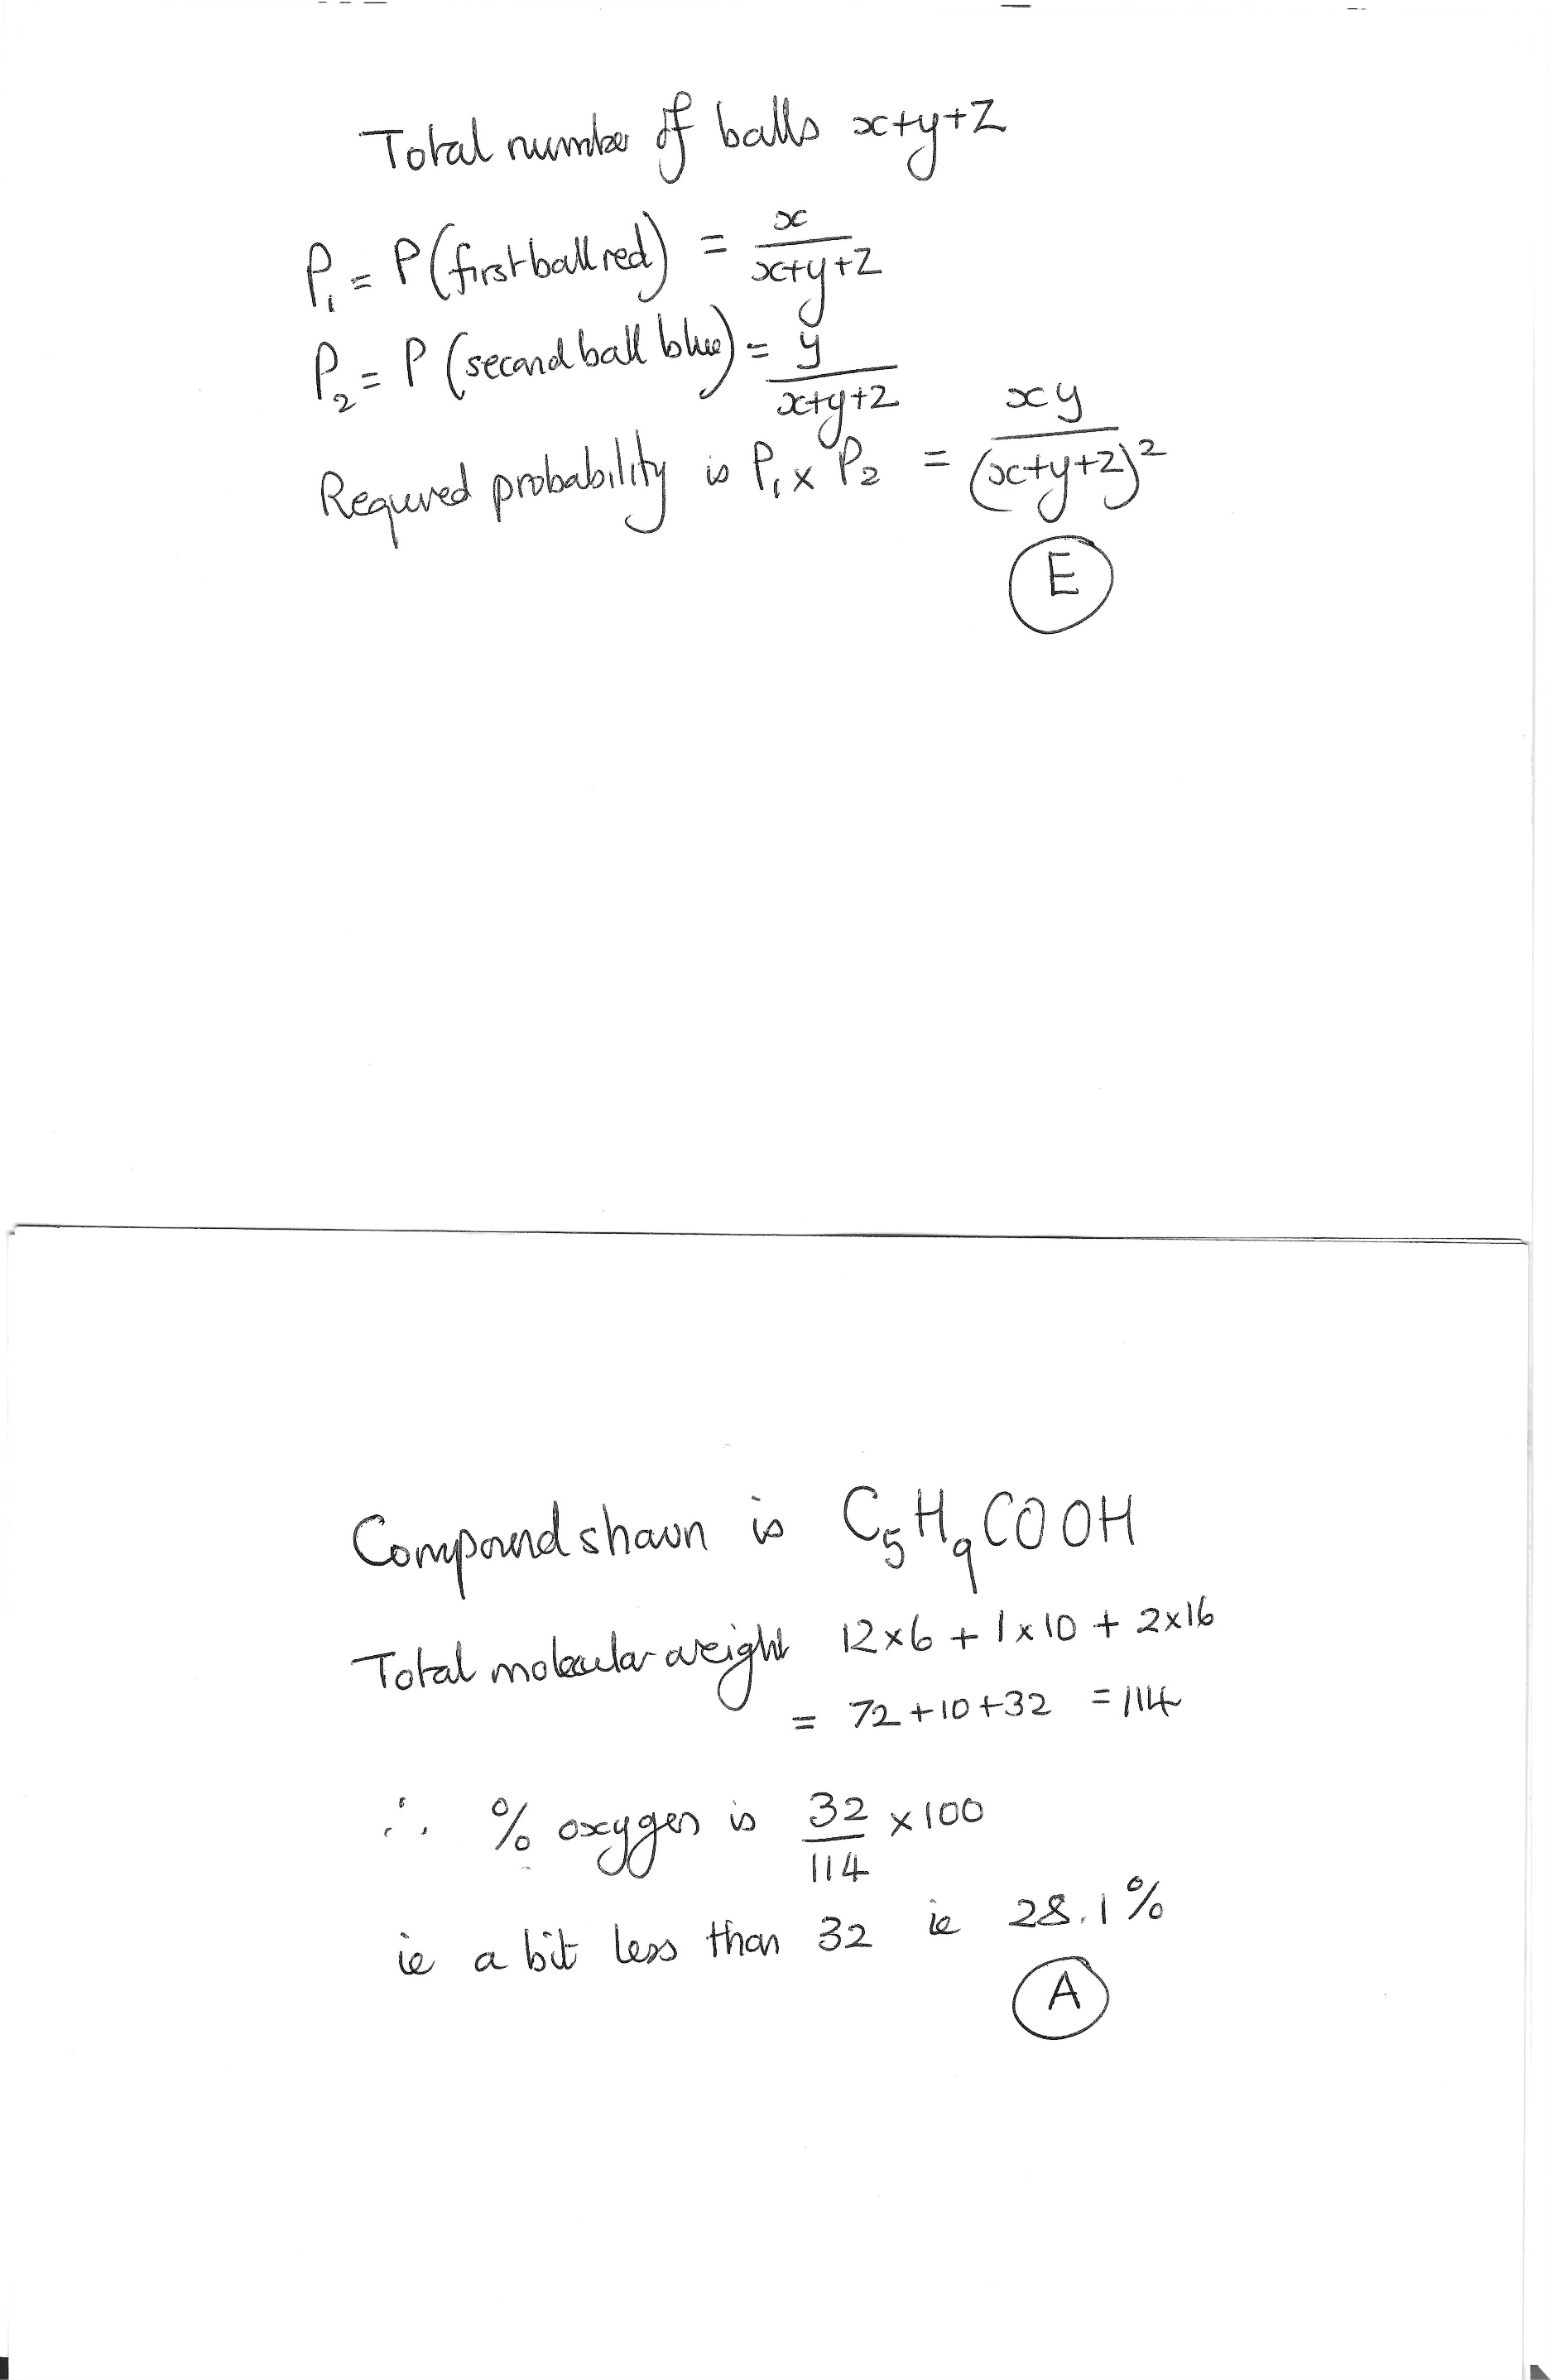 Total number of balls x+y+z
P₁ = P(first ball red) = x/(x+y+z)
P₂ = P(second ball blue) = y/(x+y+z)
Required probability is P₁ × P₂ = xy/(x+y+z)²
E
Compound shown is C₅H₉COOH
Total molecular weight 12×6 + 1×10 + 2×16
= 72+10+32 = 114
∴ % oxygen is 32/114 × 100
ie a bit less than 32 ie 28.1%
A